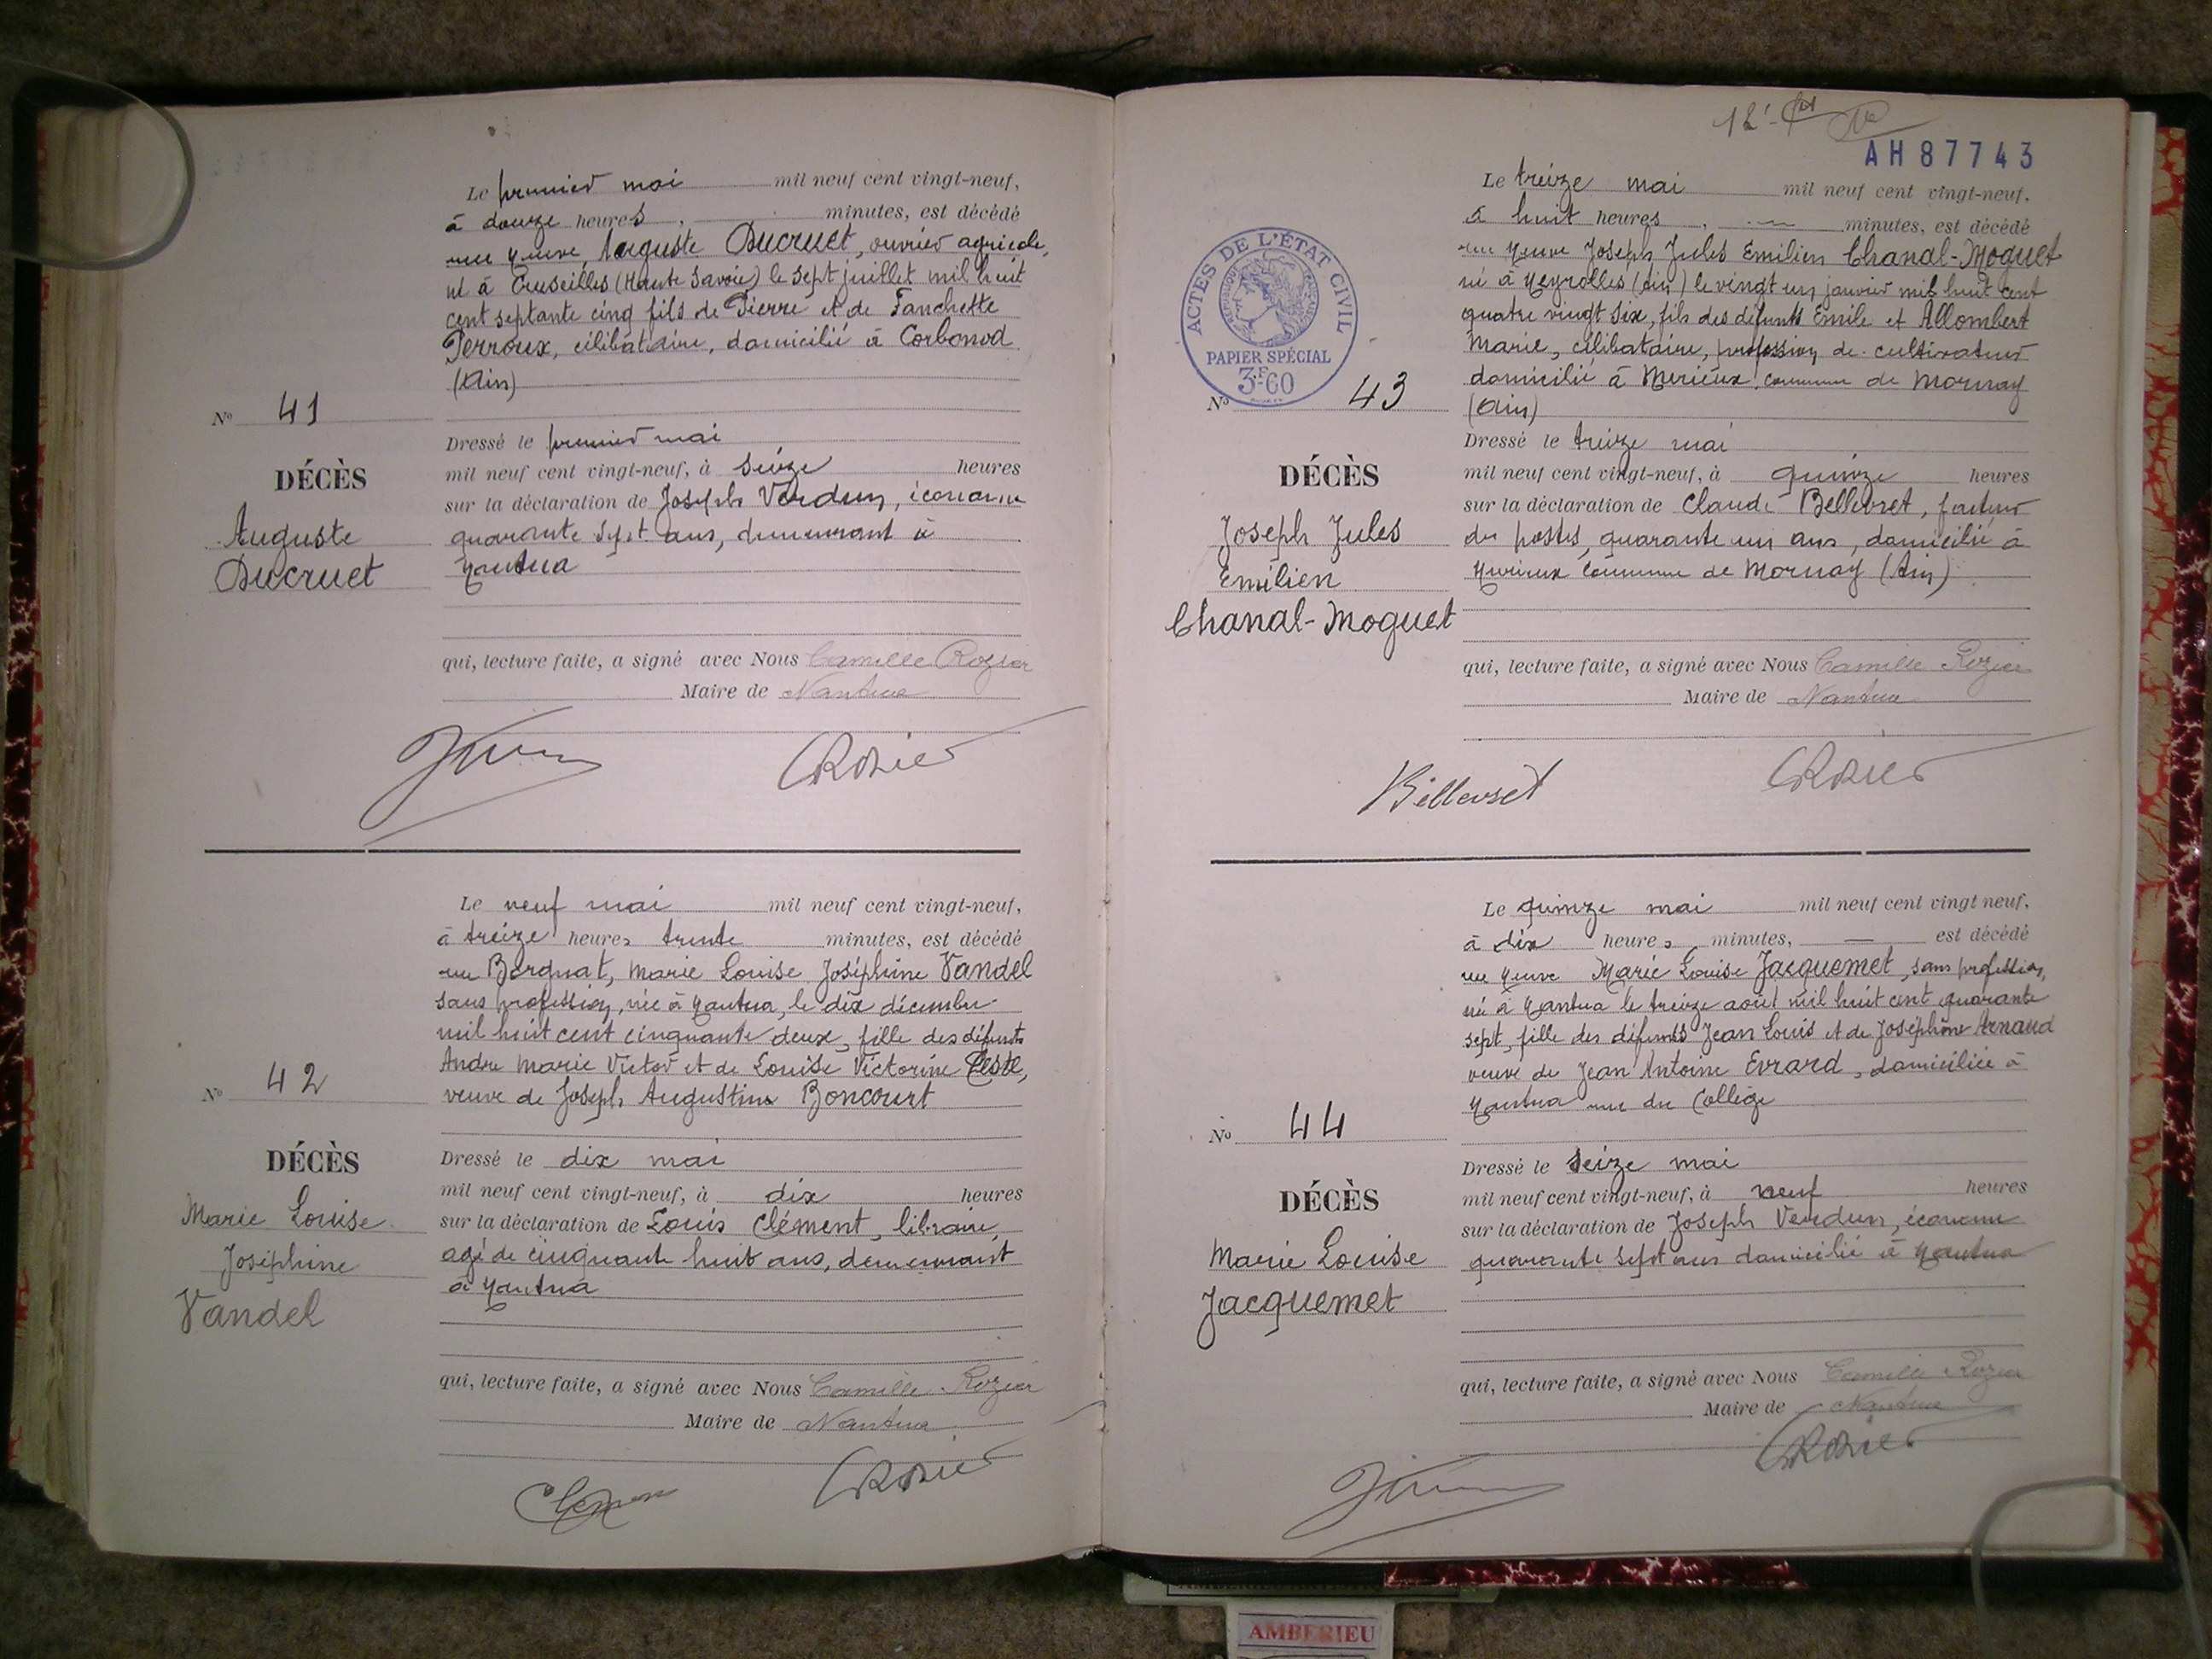 Le premier mai mil neuf cent vingt-neuf,
à douze heures, minutes, est décédé
rue neuve, Auguste Ducruet, ouvrier agricole,
né à Cruseilles (Haute Savoie) le sept juillet mil huit
cent septante cinq fils de Pierre et de Fanchette
Perroux, célibataire, domicilié à Corbonod
(Ain)
No 41
Dressé le premier mai
mil neuf cent vingt-neuf, à seize heures
DÉCÈS
sur la déclaration de Joseph Verdun, économe
Auguste
quarante sept ans, demeurant à
Ducruet
Nantua
qui, lecture faite, a signé avec Nous Camille Rozier
Maire de Nantua
CRozier
Le neuf mai mil neuf cent vingt-neuf,
à treize heures trente minutes, est décédé
rue Borgnat, Marie Louise Joséphine Vandel
sans profession, née à Nantua, le dix décembre
mil huit cent cinquante deux, fille des défunts
Andre Marie Victor et de Louise Victorine Teste,
No 42
veuve de Joseph Augustin Boncourt
DÉCÈS
Dressé le dix mai
mil neuf cent vingt-neuf, à dix heures
Marie Louise
sur la déclaration de Louis Clément, libraire,
Joséphine
agé de cinquante huit ans, demeurant
Vandel
à Nantua
qui, lecture faite, a signé avec Nous Camille Rozier
Maire de Nantua
Clément
CRozier
12e
AH87743
Le treize mai mil neuf cent vingt-neuf,
à huit heures, — minutes, est décédé
rue neuve Joseph Jules Emilien Chanal-Moguet
né à Neyrolles (Ain) le vingt un janvier mil huit cent
quatre vingt six, fils des défunts Emile et Allombert
Marie, célibataire, profession de cultivateur
domicilié à Merieux, commune de Mornay
(Ain)
ACTES DE L'ÉTAT CIVIL
PAPIER SPÉCIAL
3F60
No 43
Dressé le treize mai
mil neuf cent vingt-neuf, à quinze heures
DÉCÈS
sur la déclaration de Claude Bellevret, facteur
Joseph Jules
des postes, quarante un ans, domicilié à
Emilien
Murieux commune de Mornay (Ain)
Chanal-Moguet
qui, lecture faite, a signé avec Nous Camille Rozier
Maire de Nantua
Bellevret
CRozier
Le quinze mai mil neuf cent vingt neuf,
à dix heures minutes, — est décédé
rue neuve Marie Louise Jacquemet, sans profession,
né à Nantua le treize août mil huit cent quarante
sept, fille des défunts Jean Louis et de Joséphine Arnaud
veuve de Jean Antoine Evrard, domiciliée à
Nantua rue du Collège
No 44
Dressé le seize mai
DÉCÈS
mil neuf cent vingt-neuf, à neuf heures
sur la déclaration de Joseph Verdun, économe
Marie Louise
quarante sept ans domicilié à Nantua
Jacquemet
qui, lecture faite, a signé avec Nous Camille Rozier
Maire de Nantua
CRozier
AMBERIEU